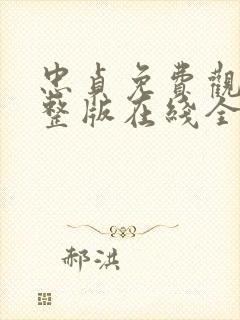 忠貞免費觀
整版在綫全
郝洪